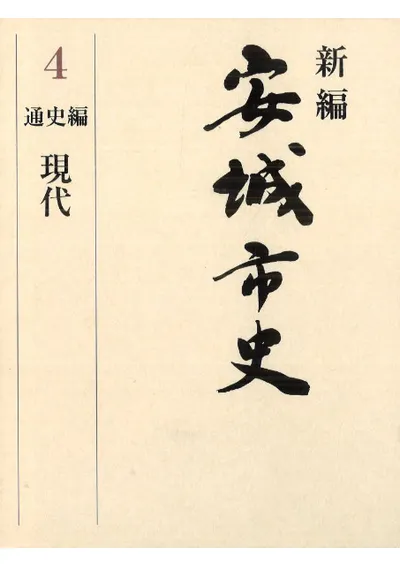 新編
安城市史
4
通史編
現代